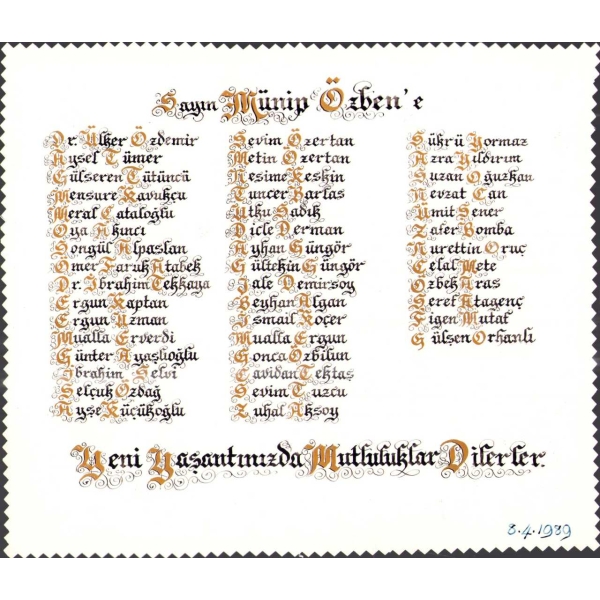 Sayın Münip Özben'e
Dr. Ülker Özdemir
Aysel Tümer
Gülseren Tütüncü
Mensure Kavukçu
Meral Cataloğlu
Oya Akıncı
Songül Alpaslan
Ömer Faruk Atabek
Dr. İbrahim Tekkaya
Ergun Kaptan
Ergun Uzman
Mualla Erverdi
Günter Ayaşlıoğlu
İbrahim Selvi
Selçuk Özdağ
Ayşe Küçükoğlu
Sevim Özertan
Metin Özertan
Nesime Keskin
Tuncer Bartas
Utku Sadık
Dicle Derman
Ayhan Güngör
Gültekin Güngör
Jale Demirsoy
Beyhan Algan
İsmail Koçer
Mualla Ergun
Gonca Özbilun
Cavidan Tektaş
Sevim Tuzcu
Zuhal Aksoy
Şükrü Yormaz
Azra Yıldırım
Suzan Oğuzkan
Nevzat Can
Ümit Şener
Zafer Bomba
Nurettin Oruç
Celal Mete
Özbek Aras
Şeref Atagenç
Figen Mutaf
Gülşen Orhanlı
Yeni Yaşantınızda Mutluluklar Dilerler.
3.4.1989